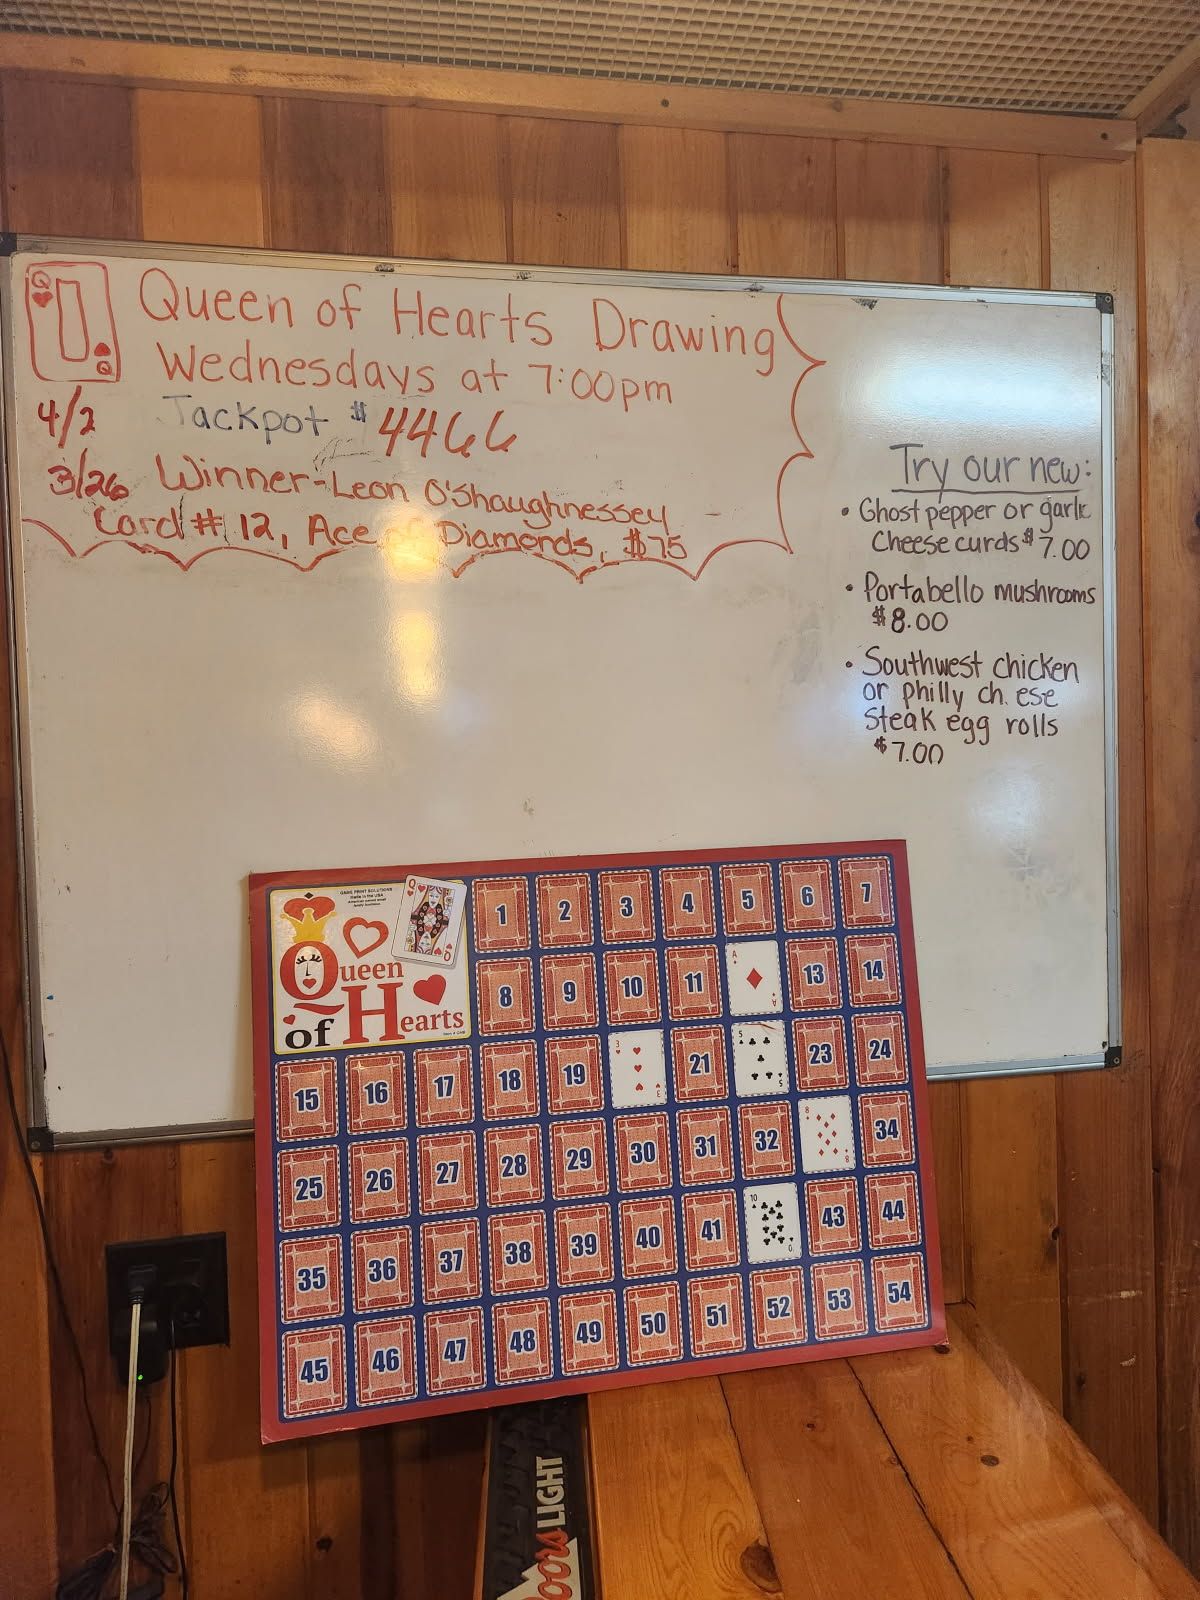 Q
Queen of Hearts Drawing
Wednesdays at 7:00pm
4/2 Jackpot $4466
3/26 Winner-Leon O'Shaughnessey
Card # 12, Ace of Diamonds, $75
Q
Try our new:
• Ghost pepper or garlic
Cheese curds $7.00
• Portabello mushrooms
$8.00
• Southwest chicken
or philly ch ese
steak egg rolls
$7.00
GAME PRINT SOLUTIONS
Made in the USA
Q
Q
Queen
of Hearts
1 2 3 4 5 6 7
8 9 10 11 A A 13 14
15 16 17 18 19 3 3 21 5 5 23 24
25 26 27 28 29 30 31 32 8 8 34
35 36 37 38 39 40 41 10 10 43 44
45 46 47 48 49 50 51 52 53 54
Coors LIGHT